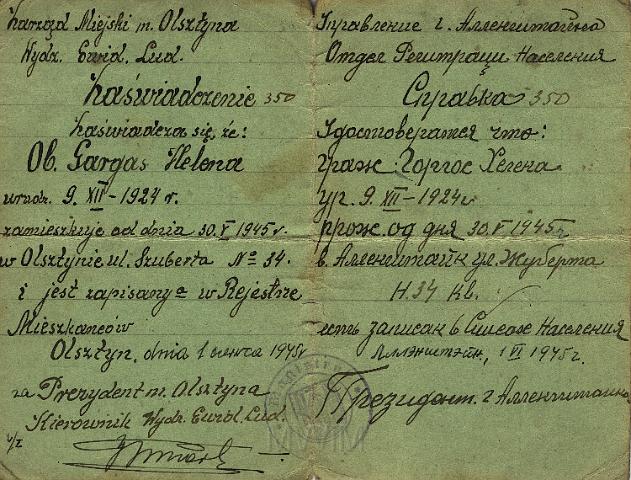 Zarząd Miejski m. Olsztyna
Wydz. Ewid. Lud.
Zaświadczenie 350
Zaświadcza się, że:
Ob. Gargas Helena
urodz. 9. XII - 1924 r.
zamieszkuje od dnia 30.V 1945 r.
w Olsztynie ul. Szuberta № 34.
i jest zapisany a w Rejestrze
Mieszkańców
Olsztyn, dnia 1 czerwca 1945 r
za Prezydent m. Olsztyna
Kierownik Wydz. Ewid. Lud.
Управление г. Алленштайна
Отдел Регистрации Населения
Справка 350
Удостоверятся что:
граж. Горгос Хелена
ур. 9. XII - 1924 г
прож. од дня 30.V 1945 г
в Алленштайн ул. Жуберта
Н. 34 кв.
есть записан в Списох Населения
Аллэнштэйн, 1 VI 1945 г.
Президент г Алленштайна